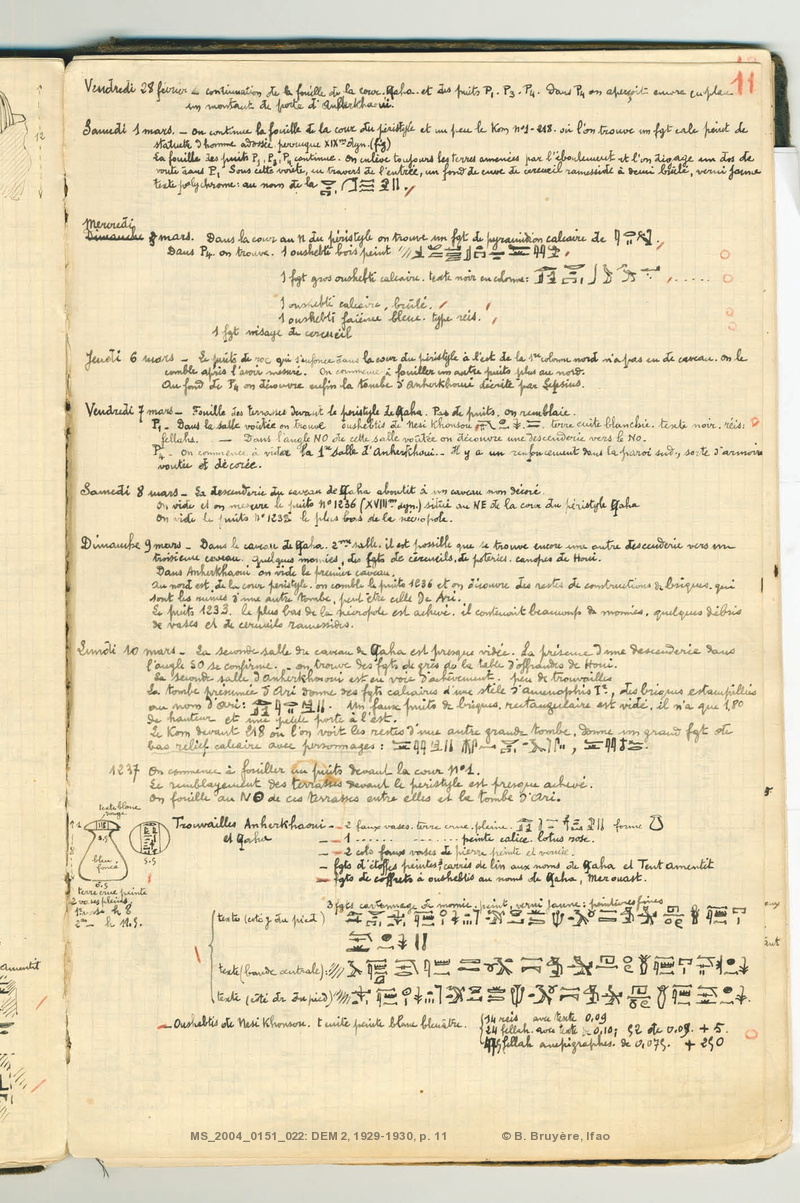 11
Vendredi 28 février – continuation de la fouille de la cour Qaha et des puits P1. P3. P4. Dans P4 on aperçoit encore en place
un montant de porte d'Anherkhaoui.
Samedi 1 mars. – On continue la fouille de la cour du péristyle et un peu le Kom nº1-218. où l'on trouve un fgt calc peint de
statuette d'homme adossée perruque XIXme dyn. (fig)
La fouille des puits P1, P3, P4 continue. On enlève toujours les terres amenées par l'éboulement et l'on dégage un dos de
voute dans P1. Sous cette voute, en travers de l'entrée, un fond de cuve de cercueil ramesside à demi brulé, verni jaune
texte polychrome: au nom de la
Mercredi
Dimanche mars. Dans la cour au N du péristyle on trouve un fgt de pyramidion calcaire de
Dans P4 on trouve. 1 oushebti bois peint
1 fgt gros oushebti calcaire. texte noir en colonne:
1 oushebti calcaire, brulé.
1 oushebti faïence bleue. type réis.
1 fgt visage de cercueil
Jeudi 6 mars – Le puits de roc qui s'enfonce dans la cour du péristyle à l'est de la 1re colonne nord n'a pas eu de caveau. on le
comble après l'avoir mesuré. On commence à fouiller un autre puits plus au nord.
Au fond de P4 on découvre enfin la tombe d'Anherkhoui décrite par Lepsius.
Vendredi 7 mars – Fouille des terrasses devant le péristyle de Qaha. Pas de puits. on remblaie.
P1 – Dans la salle voutée on trouve oushebtis de Nesi Khonsou terre cuite blanchie. texte noir. réis.
fellahs. — Dans l'angle NO de cette salle voutée on découvre une descenderie vers le NO.
P4 – On commence à vider la 1re salle d'Anherkhoui. – Il y a un renfoncement dans la paroi sud, sorte d'armoire
voutée et décorée.
Samedi 8 mars – La descenderie du caveau de Qaha aboutit à un caveau non décoré.
On vide et on mesure le puits Nº1236 (XVIIIme dyn.) situé au NE de la cour du péristyle Qaha
On vide le puits nº 1233 le plus bas de la nécropole.
Dimanche 9 mars – Dans le caveau de Qaha. 2me salle. il est possible que se trouve encore une autre descenderie vers un
troisième caveau. quelques momies, des fgts de cercueils, de poteries. canopes de Houi.
Dans Anherkhaoui on vide le premier caveau.
Au nord est de la cour péristyle. on comble le puits 1236 et on découvre des restes de constructions de briques. qui
sont les ruines d'une autre tombe, peut être celle de Ari.
Le puits 1233. le plus bas de la nécropole est achevé. il contenait beaucoup de momies, quelques débris
de vases et de cercueils ramessides.
Lundi 10 mars – La seconde salle du caveau de Qaha est presque vidée. La présence d'une descenderie dans
l'angle SO se confirme. – on trouve des fgts de grès de la table d'offrandes de Houi.
La seconde salle d'Anherkhaoui est en voie d'achèvement. peu de trouvailles
La tombe présumée d'Ari donne des fgts calcaires d'une stèle d'Amenophis Ier, des briques estampillées
au nom d'Ari: Un faux puits de briques, rectangulaire est vidé, il n'a que 1,80
de hauteur et une petite porte à l'est.
Le Kom devant 218 où l'on voit les restes d'une autre grande tombe, donne un grand fgt de
bas relief calcaire avec personnages:
1237 On commence à fouiller un puits devant la cour nº1.
Le remblayement des terrasses devant le péristyle est presque achevé.
On fouille au NO de ces terrasses entre elles et la tombe d'Ari.
texte blanc
rouge
bleu
foncé
5.5
terre crue peinte
2 vases pleins
Trouvailles Anherkhaoui – 2 faux vases. terre crue. pleine. forme
et Qaha – 1 ........ peinte calice lotus rose.
– 2 cols faux vases de pierre peinte et vernie.
– fgts d'étoffes peintes: carrés de lin aux noms de Qaha et Tent amentit
– fgts de coffrets à oushebtis au noms de Qaha, Merouast.
3 fgts cartonnage de momie. peint, verni jaune: peintures fines
texte (coté g du pied)
texte (bande centrale):
texte (côté dr du pied)
– Oushebtis de Nesi Khonsou. t cuite peinte blanc bleuâtre.
14 réis avec texte 0,09
24 fellah. avec texte de 0,10; 52 de 0.09. + 5.
fellah anépigraphes. de 0,075. + 250
amentit
MS_2004_0151_022: DEM 2, 1929-1930, p. 11 © B. Bruyère, Ifao